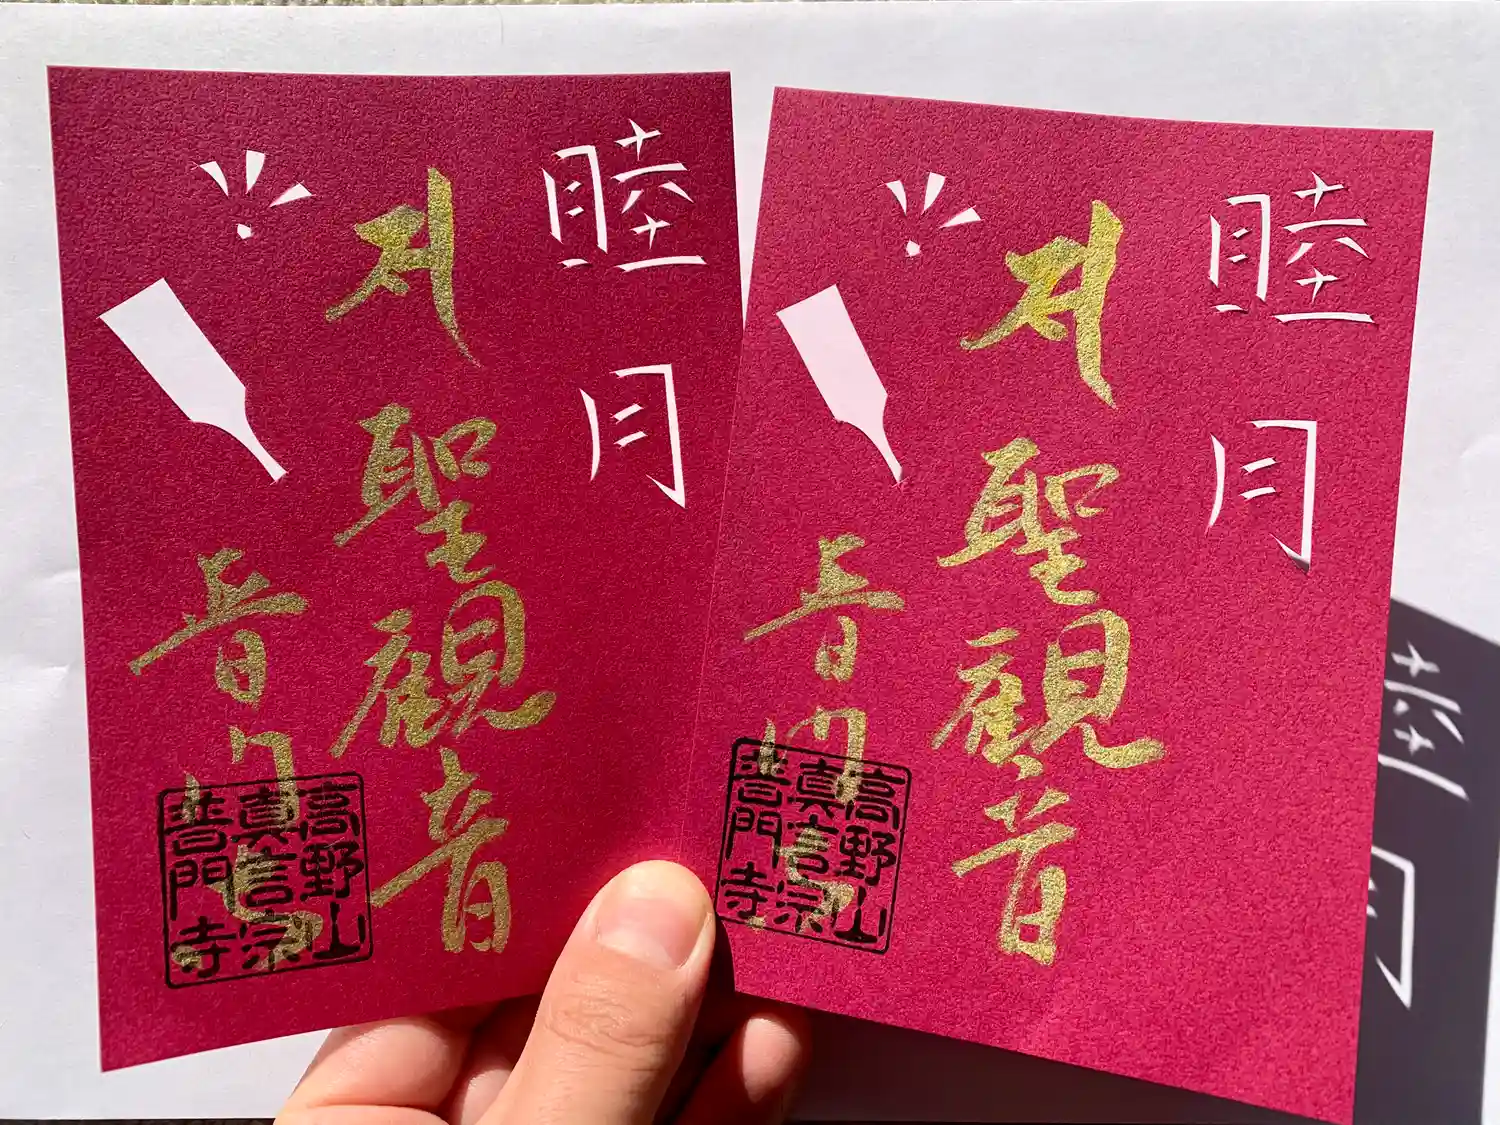 睦月
聖觀音
普門寺
高野山
真言宗
普門寺
睦月
聖觀音
普門寺
高野山
真言宗
普門寺